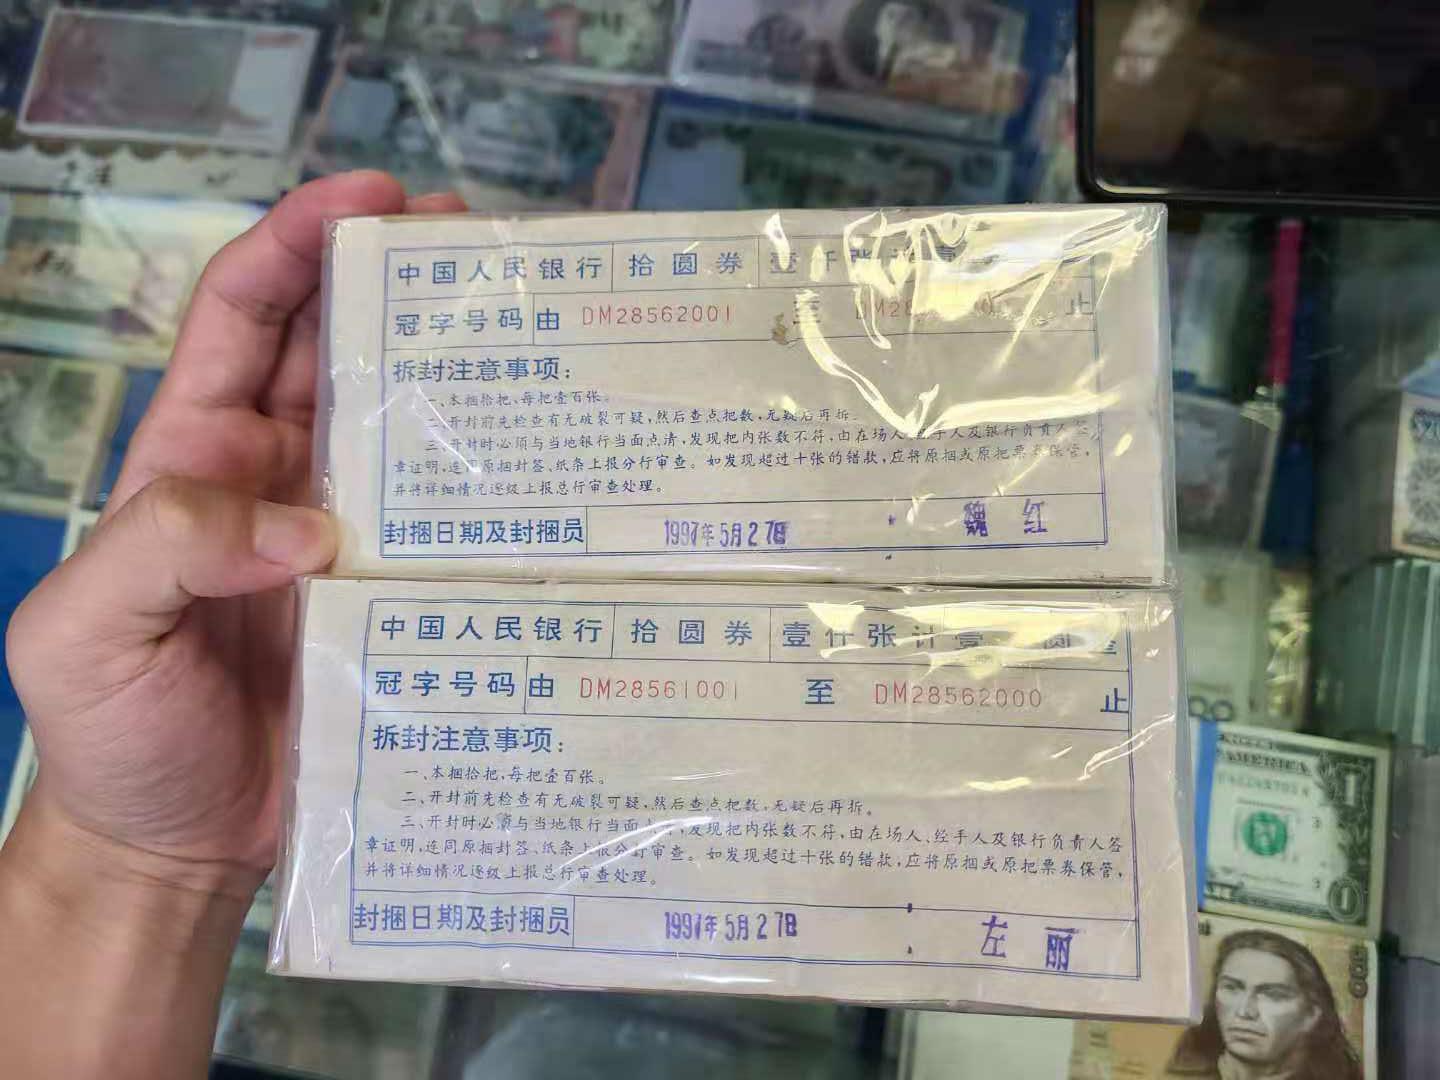 中国人民银行 拾圆券 壹仟张计壹
冠字号码由 DM28562001 至 DM28 止
拆封注意事项：
一、本捆拾把，每把壹百张。
二、开封前先检查有无破裂可疑，然后查点把数，无疑后再拆。
三、开封时必须与当地银行当面点清，发现把内张数不符，由在场人、经手人及银行负责人签
章证明，连同原捆封签、纸条上报分行审查。如发现超过十张的错款，应将原捆或原把票券保管，
并将详细情况逐级上报总行审查处理。
封捆日期及封捆员 1997年5月27日 魏红
中国人民银行 拾圆券 壹仟张计壹 圆整
冠字号码由 DM28561001 至 DM28562000 止
拆封注意事项：
一、本捆拾把，每把壹百张。
二、开封前先检查有无破裂可疑，然后查点把数，无疑后再拆。
三、开封时必须与当地银行当面点清，发现把内张数不符，由在场人、经手人及银行负责人签
章证明，连同原捆封签、纸条上报分行审查。如发现超过十张的错款，应将原捆或原把票券保管，
并将详细情况逐级上报总行审查处理。
封捆日期及封捆员 1997年5月27日 左丽
AMERICA
1